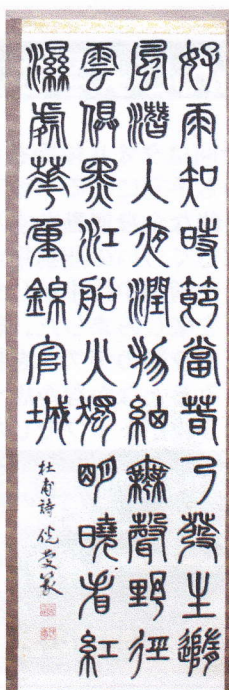 好雨知時節當春乃發生隨
風潛入夜潤物細無聲野徑
雲俱黑江船火獨明曉看紅
濕處華重錦官城
杜甫詩 篆